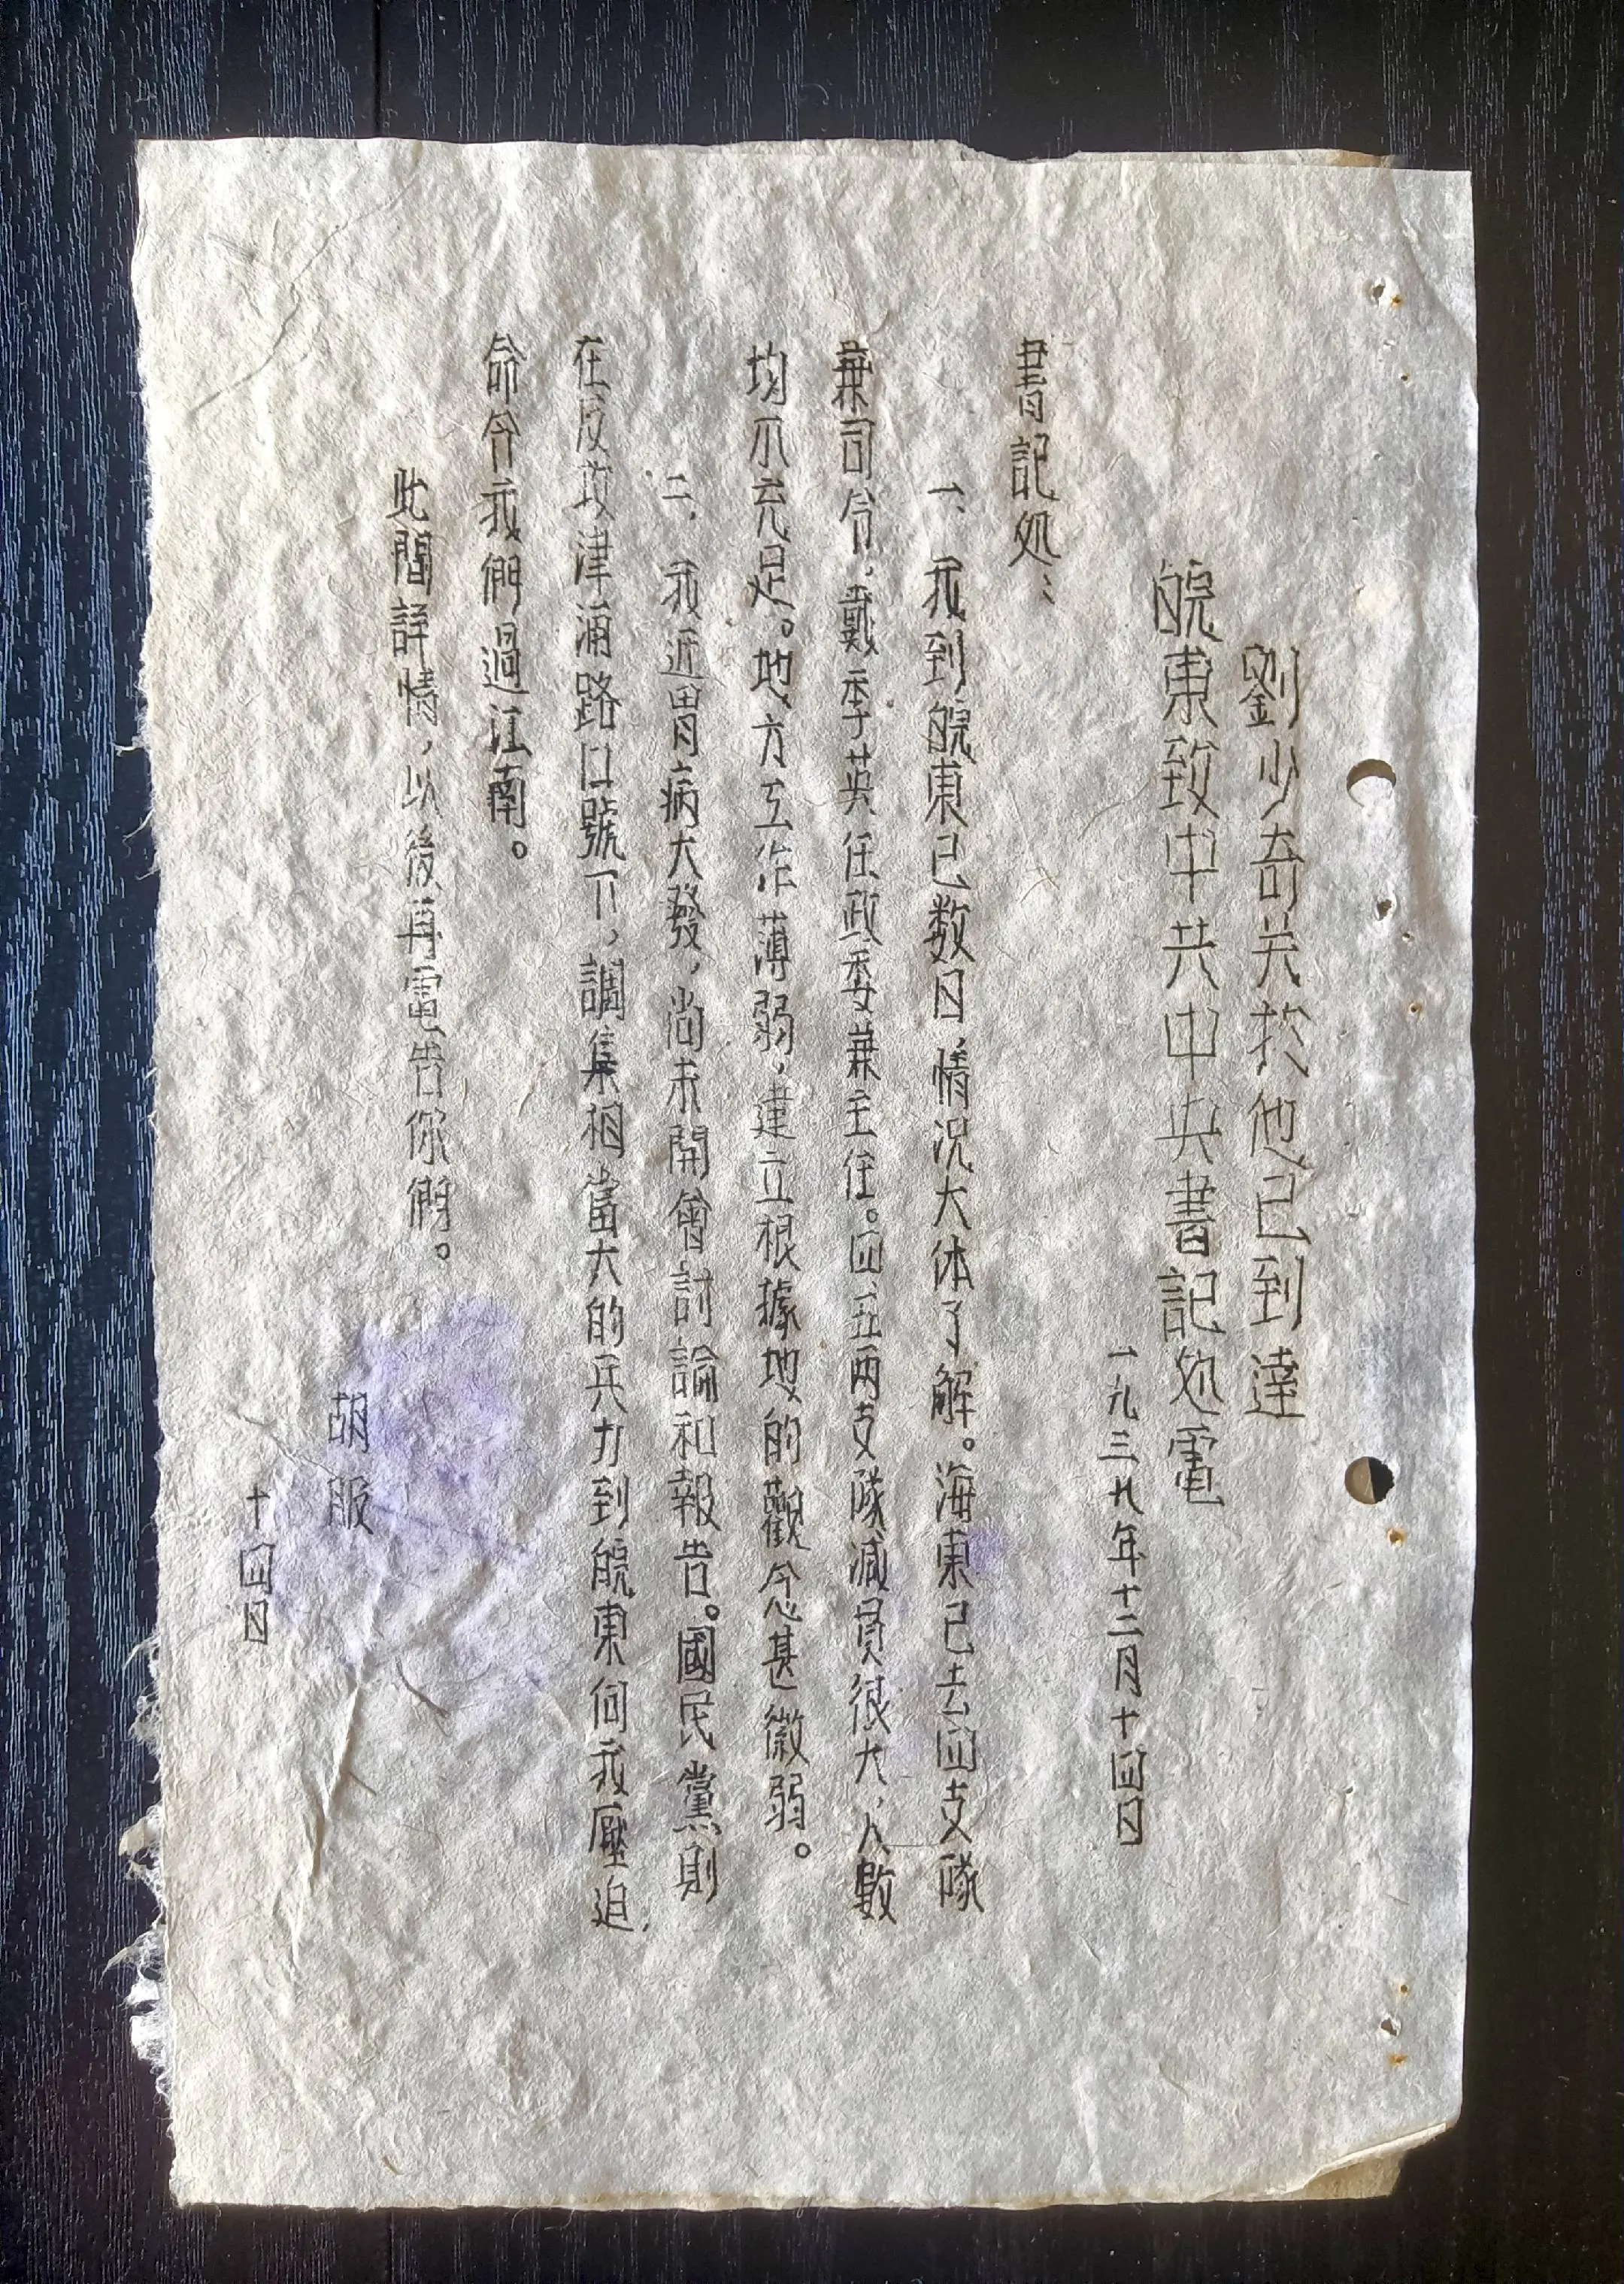 劉少奇关於他已到達
皖東致中共中央書記処電
一九三九年十二月十四日
書記処：
一、我到皖東已数日，情况大体了解。海東已去四支隊
兼司令，戴季英任政委兼主任。四、五兩支隊減員很大，人數
均不充足。地方工作薄弱，建立根據地的觀念甚微弱。
二、我近胃病大發，尚未開會討論和報告。國民黨則
在反攻津浦路口號下，調集相當大的兵力到皖東向我壓迫，
命令我們過江南。
此間詳情，以後再電告你們。
胡服
十四日